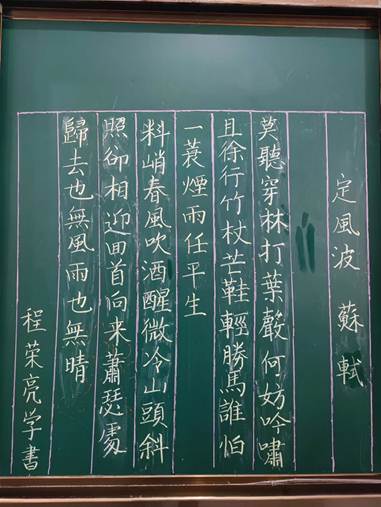 定風波 蘇軾
莫聽穿林打葉聲何妨吟嘯
且徐行竹杖芒鞋輕勝馬誰怕
一蓑煙雨任平生
料峭春風吹酒醒微冷山頭斜
照卻相迎回首向来蕭瑟處
歸去也無風雨也無晴
程荣亮学書